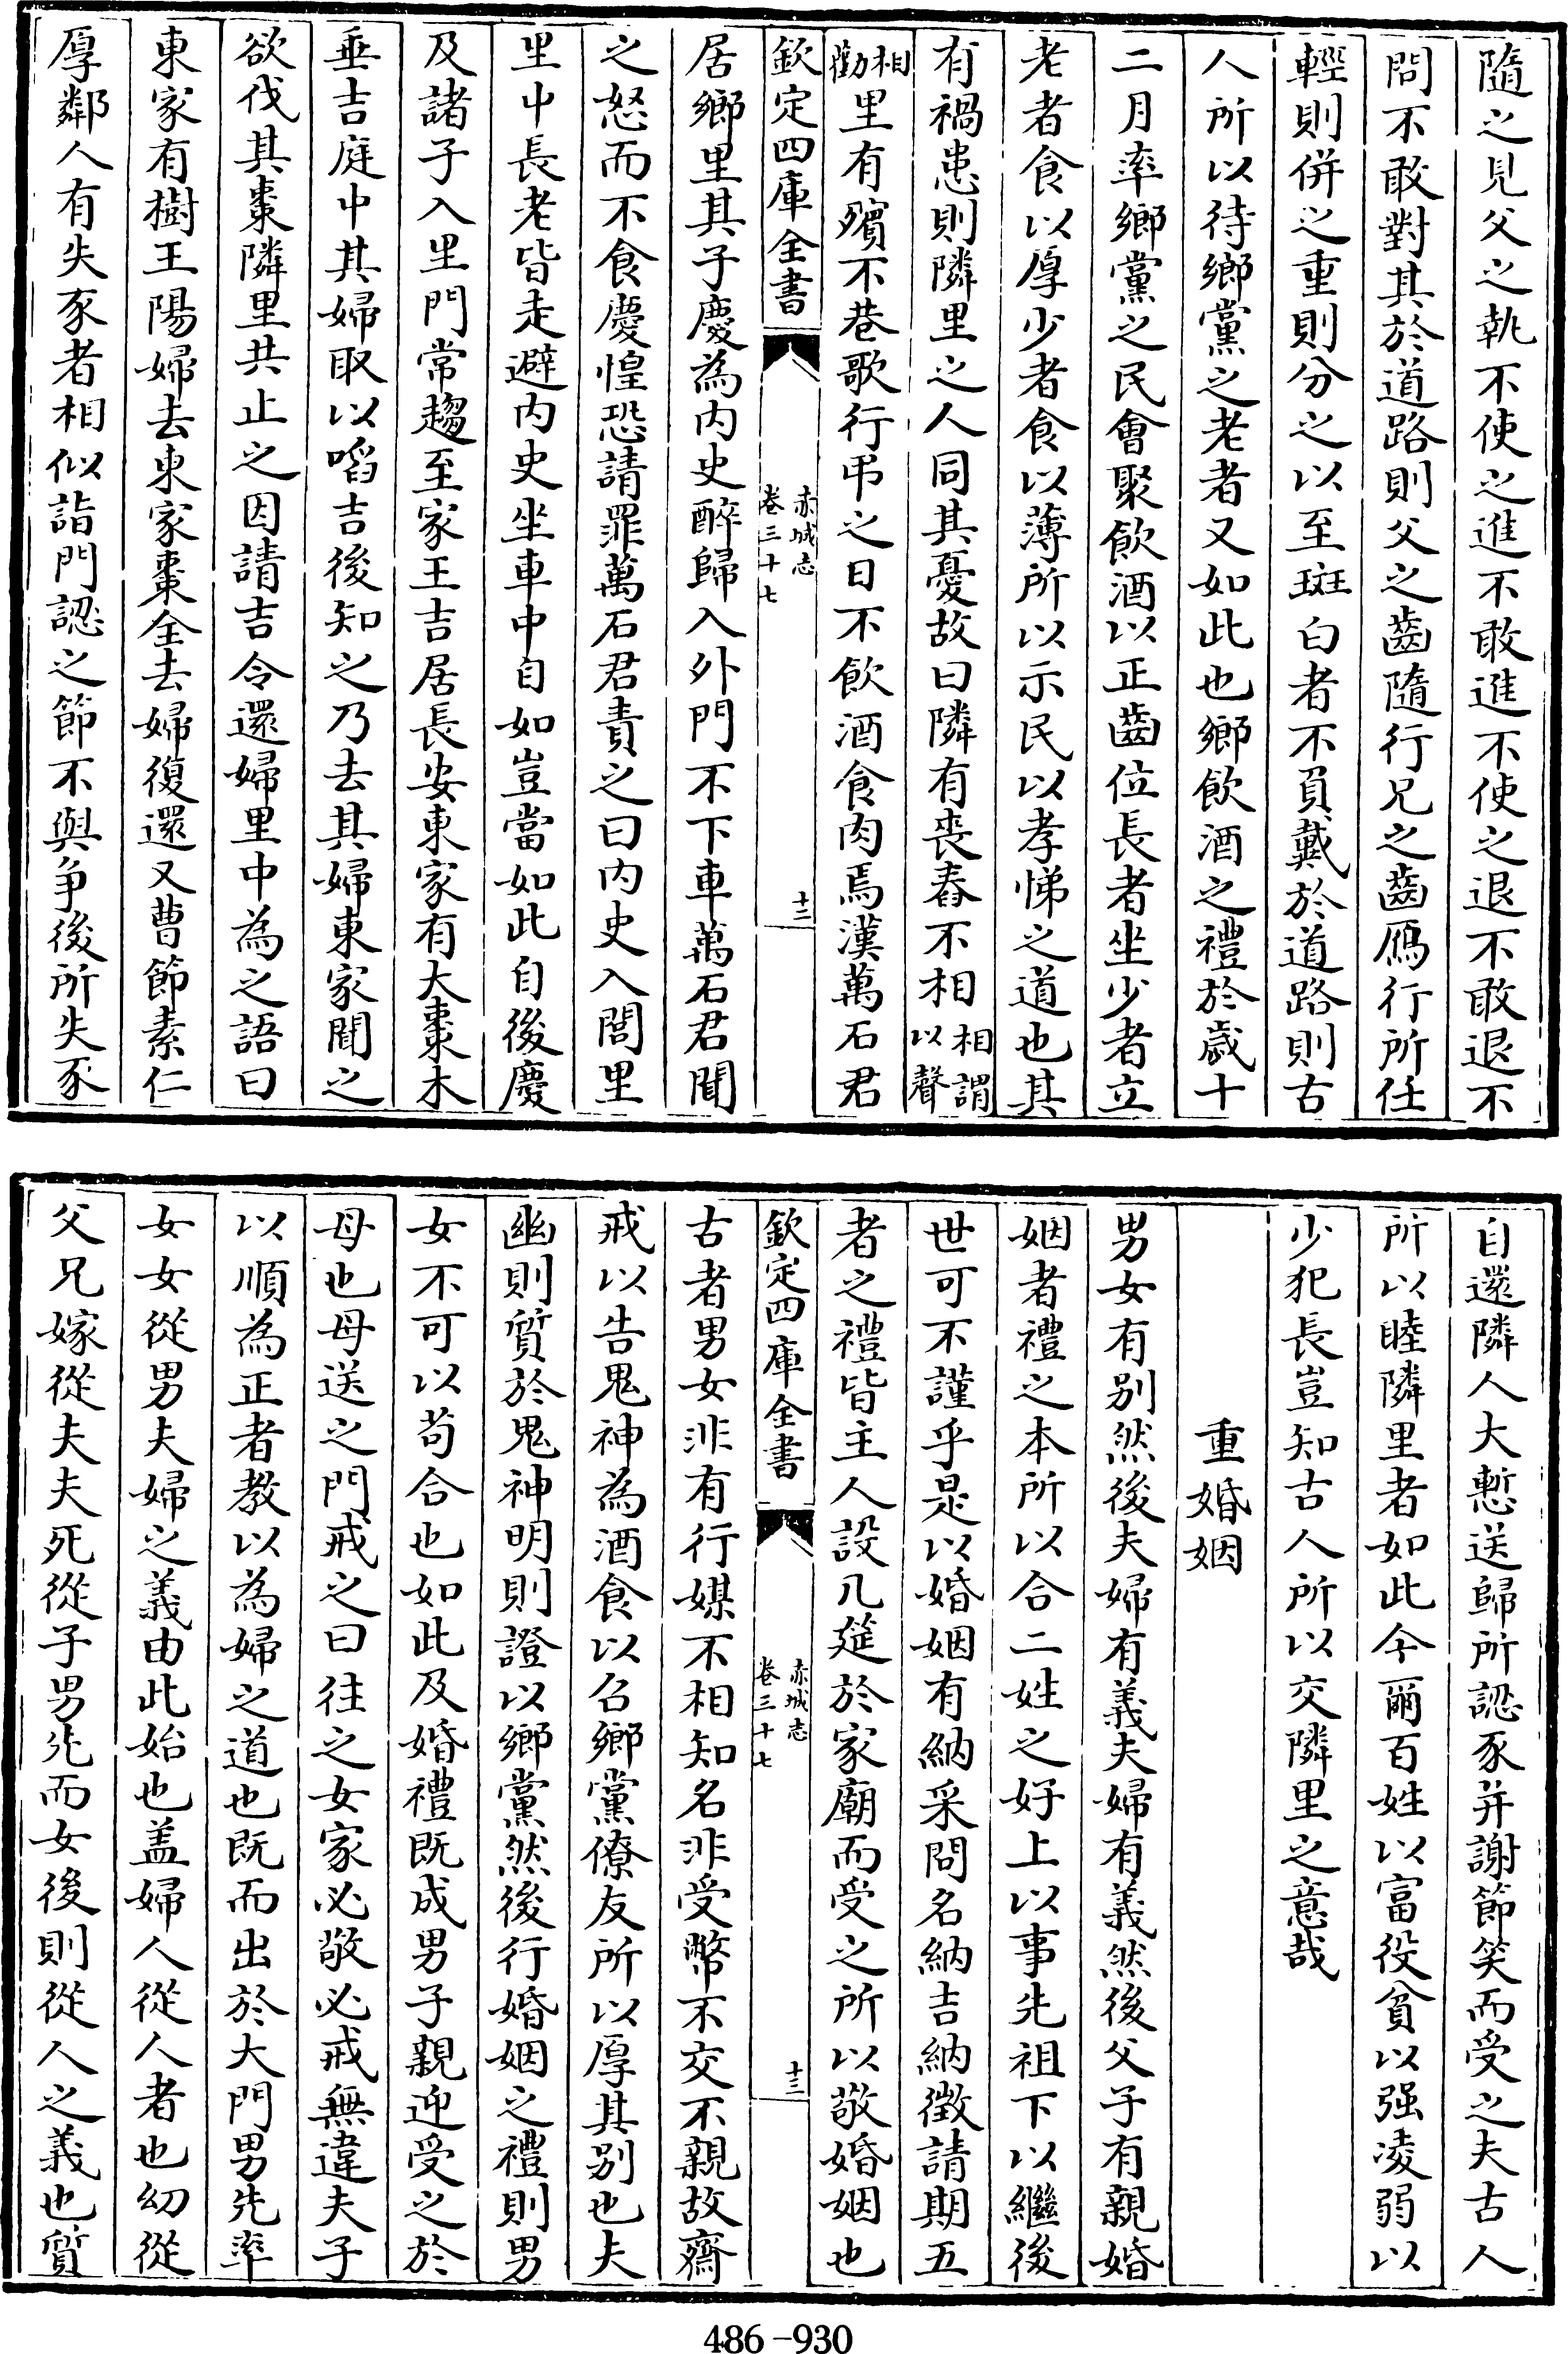 隨之見父之執不使之進不敢進不使之退不敢退不
問不敢對其於道路則父之齒隨行兄之齒鴈行所任
輕則併之重則分之以至斑白者不負戴於道路則古
人所以待鄉黨之老者又如此也鄉飲酒之禮於嵗十
二月率鄉黨之民會聚飲酒以正齒位長者坐少者立
老者食以厚少者食以薄所以示民以孝悌之道也其
有禍患則隣里之人同其憂故曰隣有喪舂不相相謂以聲
相勸里有殯不巷歌行弔之日不飲酒食肉焉漢萬石君
欽定四庫全書
赤城志
卷三十七
十三
居鄉里其子慶為内史醉歸入外門不下車萬石君聞
之怒而不食慶惶恐請罪萬石君責之曰内史入閭里
里中長老皆走避内史坐車中自如豈當如此自後慶
及諸子入里門常趨至家王吉居長安東家有大棗木
垂吉庭中其婦取以啗吉後知之乃去其婦東家聞之
欲伐其棗隣里共止之因請吉令還婦里中為之語曰
東家有樹王陽婦去東家棗全去婦復還又曹節素仁
厚鄰人有失豕者相似詣門認之節不與爭後所失豕
自還隣人大慙送歸所認豕并謝節笑而受之夫古人
所以睦隣里者如此今爾百姓以富役貧以强凌弱以
少犯長豈知古人所以交隣里之意哉
重婚姻
男女有别然後夫婦有義夫婦有義然後父子有親婚
姻者禮之本所以合二姓之好上以事先祖下以繼後
世可不謹乎是以婚姻有納采問名納吉納徵請期五
者之禮皆主人設几筵於家廟而受之所以敬婚姻也
欽定四庫全書
赤城志
卷三十七
十三
古者男女非有行媒不相知名非受幣不交不親故齋
戒以告鬼神為酒食以召鄉黨僚友所以厚其别也夫
幽則質於鬼神明則證以鄉黨然後行婚姻之禮則男
女不可以苟合也如此及婚禮既成男子親迎受之於
母也母送之門戒之曰往之女家必敬必戒無違夫子
以順為正者教以為婦之道也既而出於大門男先率
女女從男夫婦之義由此始也盖婦人從人者也幼從
父兄嫁從夫夫死從子男先而女後則從人之義也質
486-930